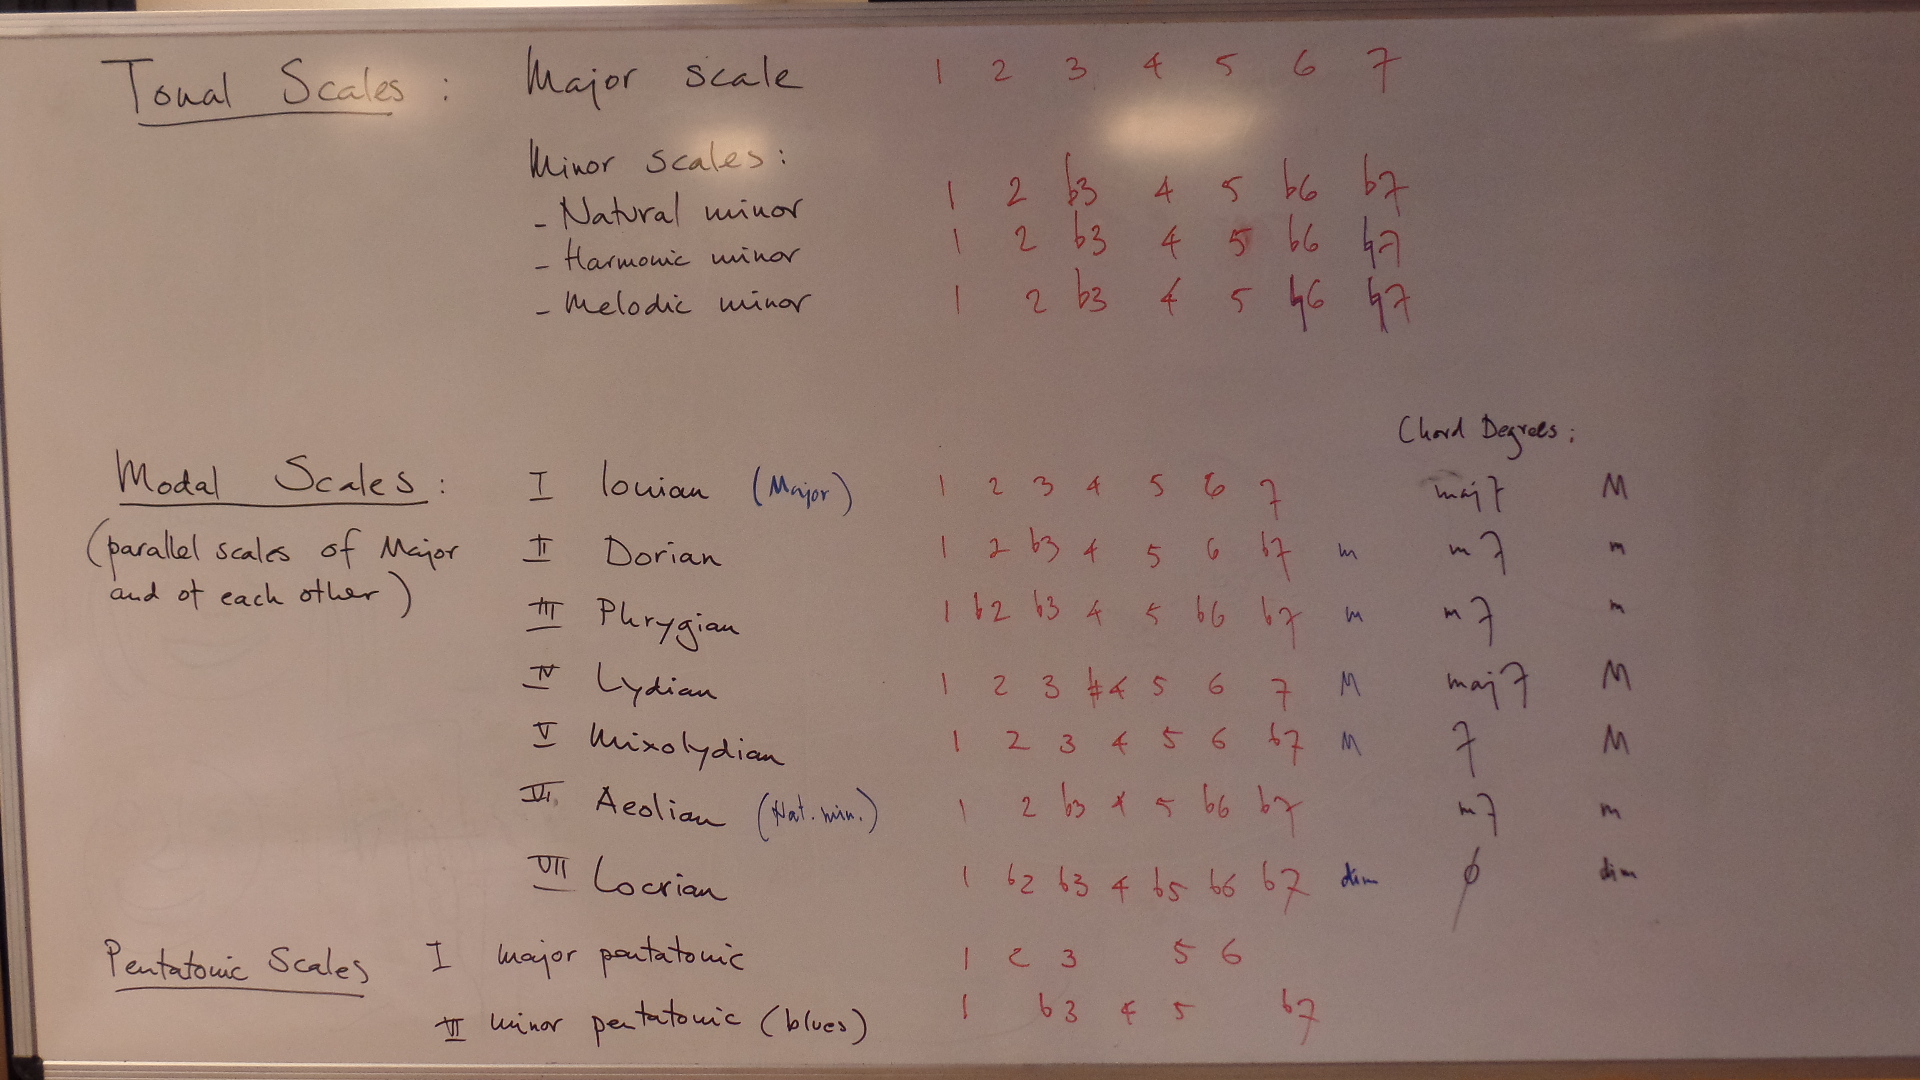 Tonal Scales : Major scale 1 2 3 4 5 6 7
Minor scales :
- Natural minor 1 2 b3 4 5 b6 b7
- Harmonic minor 1 2 b3 4 5 b6 ♮7
- Melodic minor 1 2 b3 4 5 ♮6 ♮7
Chord Degrees :
Modal Scales : I Ionian (Major) 1 2 3 4 5 6 7 maj7 M
(parallel scales of Major
and of each other)
II Dorian 1 2 b3 4 5 6 b7 m m7 m
III Phrygian 1 b2 b3 4 5 b6 b7 m m7 m
IV Lydian 1 2 3 #4 5 6 7 M maj7 M
V Mixolydian 1 2 3 4 5 6 b7 M 7 M
VI Aeolian (Nat. min.) 1 2 b3 4 5 b6 b7 m7 m
VII Locrian 1 b2 b3 4 b5 b6 b7 dim ø dim
Pentatonic Scales I major pentatonic 1 2 3 5 6
II minor pentatonic (blues) 1 b3 4 5 b7